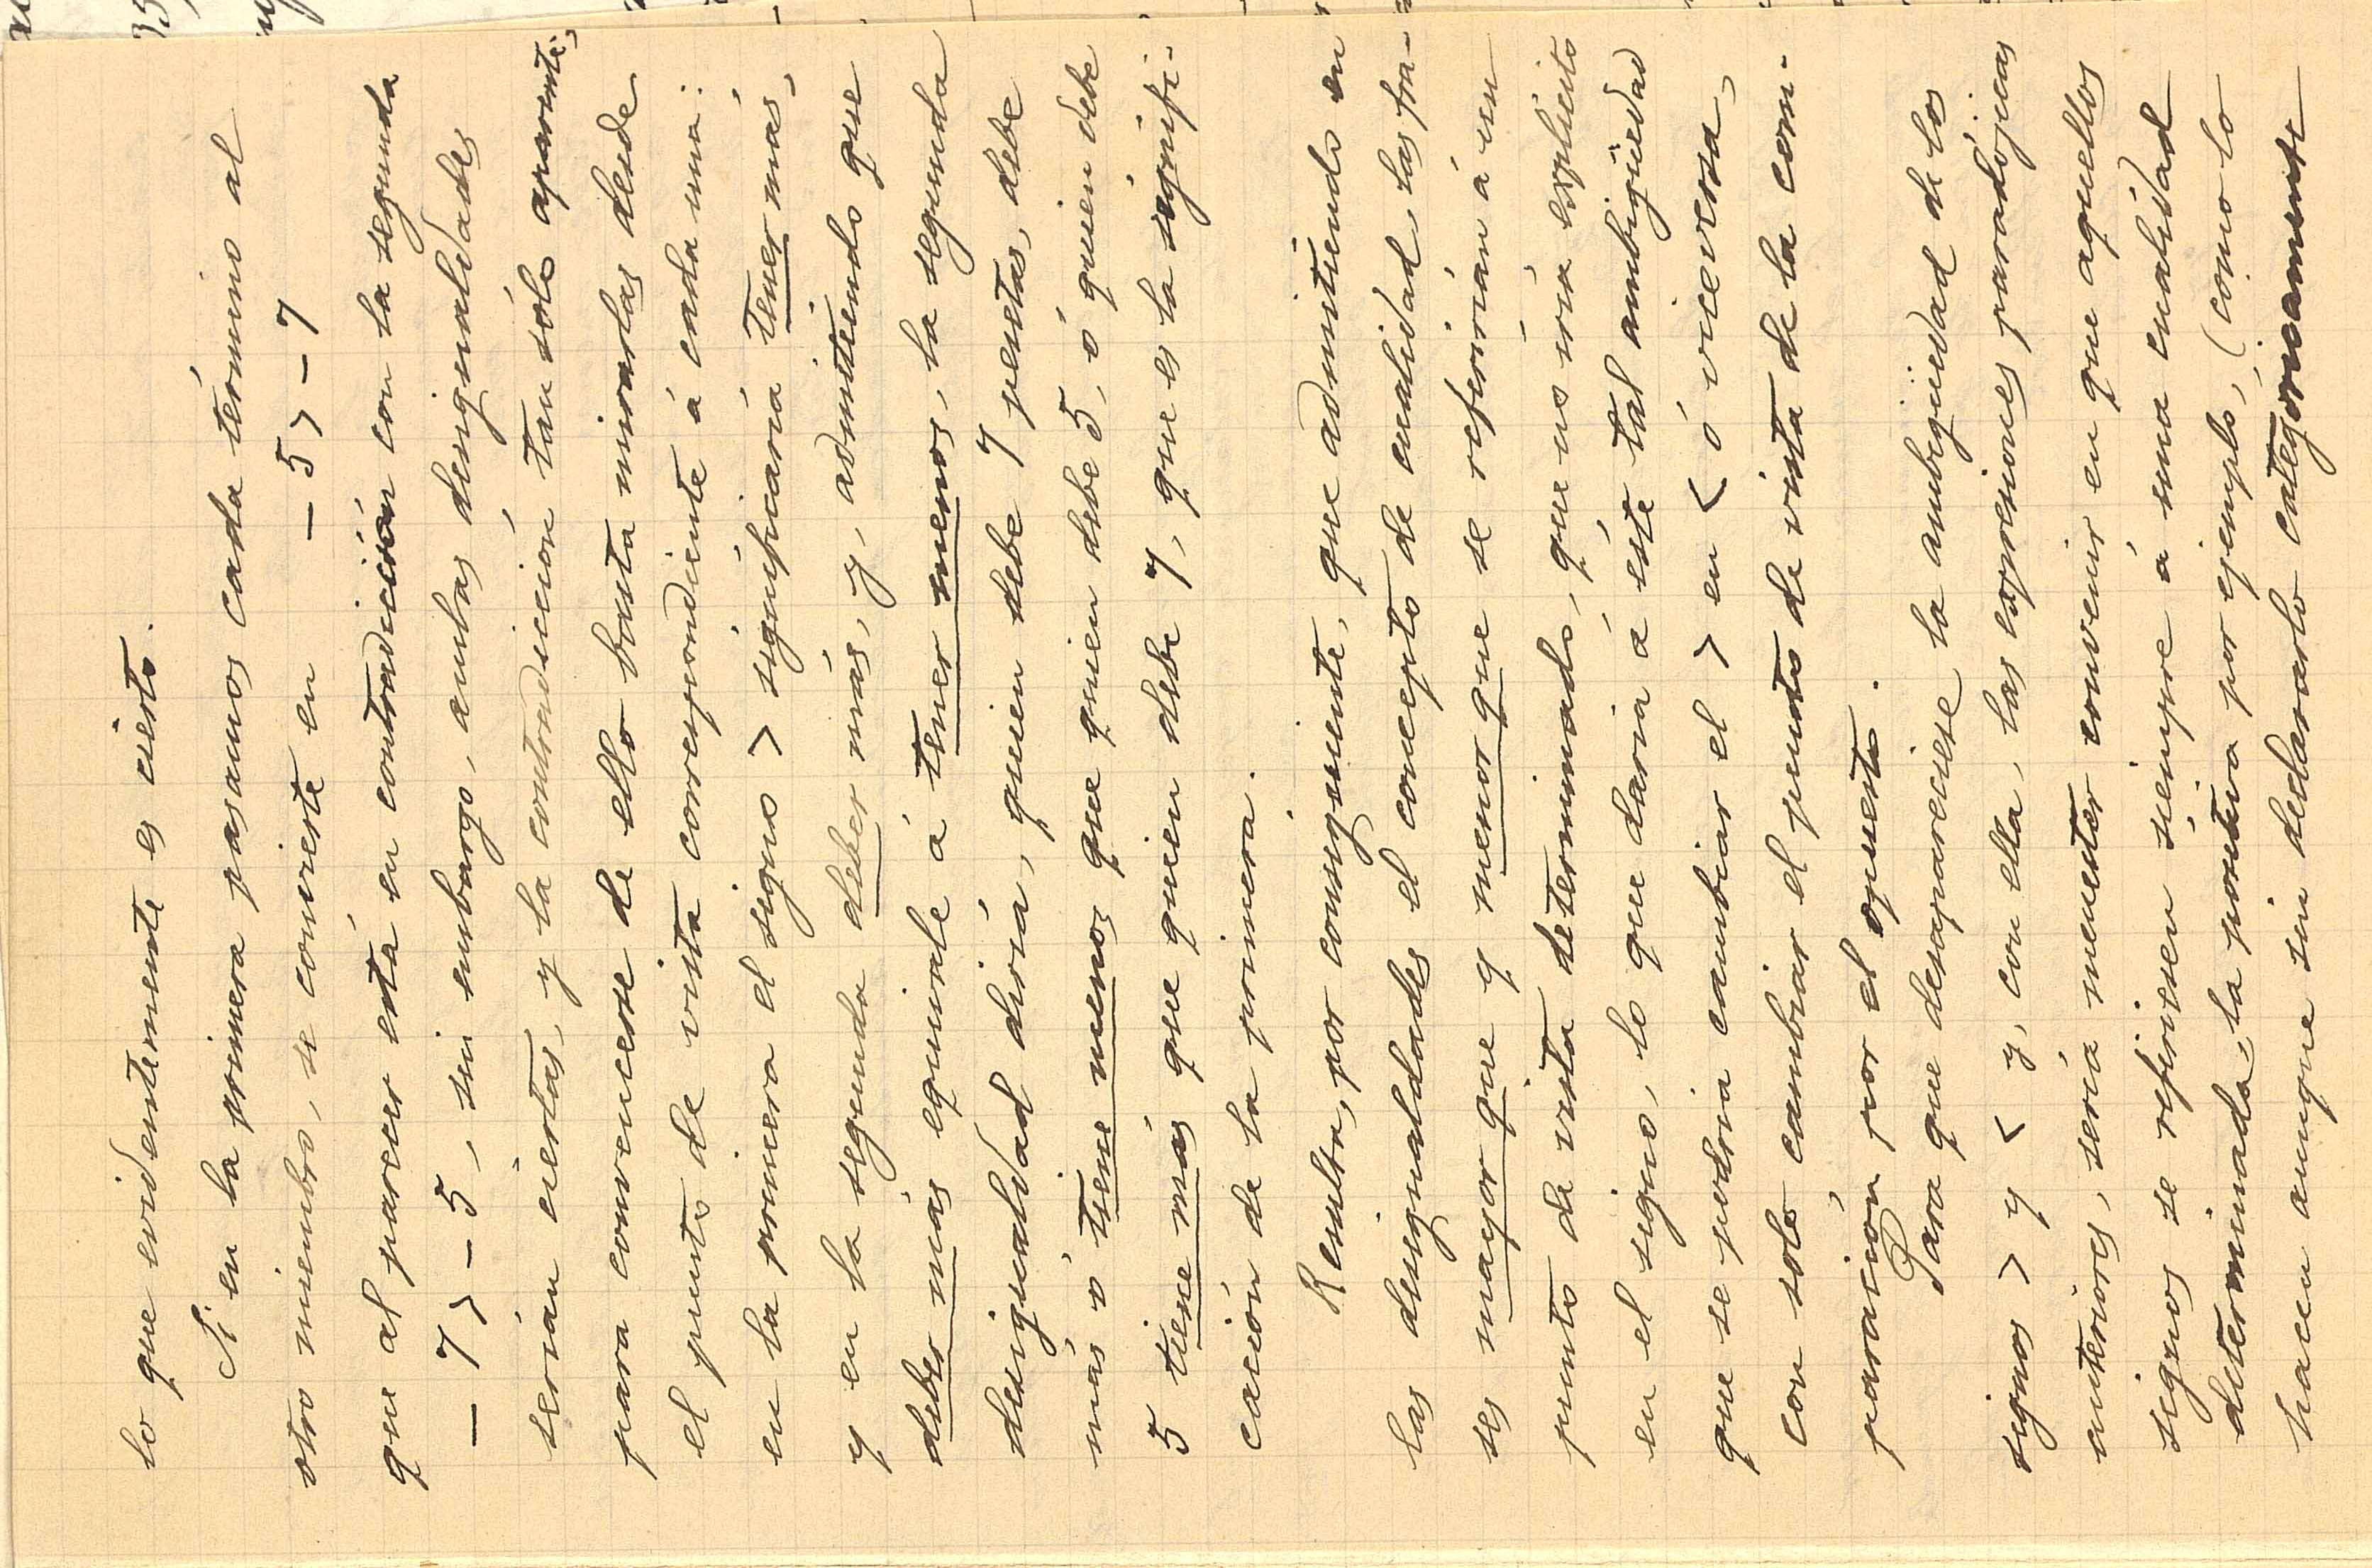 lo que evidentemente es cierto.
Si en la primera pasamos cada término al
otro miembro, se convierte en — 5 > — 7
que al parecer está en contradicción con la segunda
— 7 > — 5, sin embargo, ambas desigualdades
serían ciertas, y la contradicción tan sólo aparente;
para convencerse de ello basta mirarlas desde
el punto de vista correspondiente á cada una:
en la primera el signo > significaría tener más,
y en la segunda deber más, y, admitiendo que
deber más equivale á tener menos, la segunda
desigualdad diría, quien debe 7 pesetas, debe
más ó tiene menos que quien debe 5, ó quien debe
5 tiene más que quien debe 7, que es la signifi-
cación de la primera.
Resulta, por consiguiente, que admitiendo en
las desigualdades el concepto de cualidad, las fra-
ses mayor que y menor que se referirían á un
punto de vista determinado, que no iría explícito
en el signo, lo que daría á éste tal ambigüedad
que se podría cambiar el > en < ó viceversa,
con solo cambiar el punto de vista de la com-
paración por el opuesto.
Para que desapareciese la ambigüedad de los
signos > y < y, con ella, las expresiones paradójicas
anteriores, sería menester convenir en que aquellos
signos se refiriesen siempre á una cualidad
determinada, la positiva por ejemplo, (como lo
hacen aunque sin declararlo categóricamente